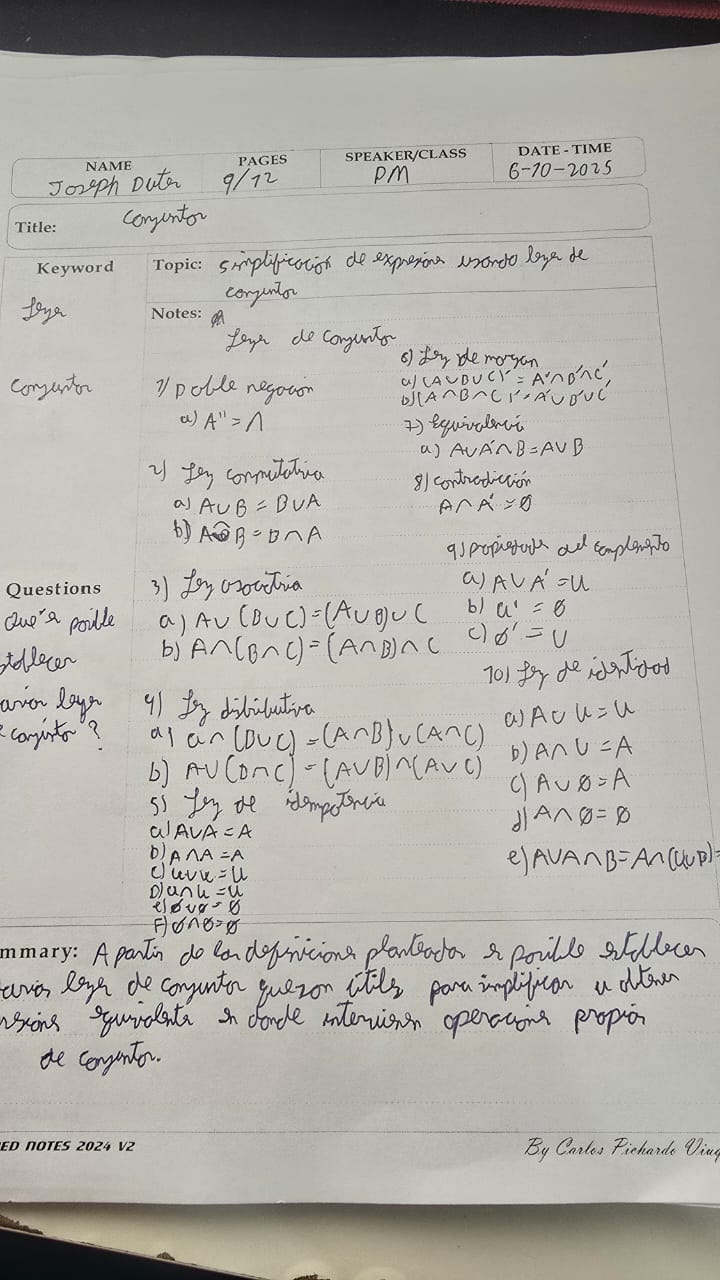 NAME PAGES SPEAKER/CLASS DATE - TIME
Joseph Duter 9/12 DM 6-10-2025
Title: Conjuntos
Keyword
Leyes
Conjuntos
Topic: simplificación de expresiones usando leyes de
conjuntos
Notes:
Leyes de conjuntos
1) Doble negación
a) A'' = A
2) Ley conmutativa
a) A∪B = B∪A
b) A∩B = B∩A
3) Ley asociativa
a) A∪(B∪C)=(A∪B)∪C
b) A∩(B∩C)=(A∩B)∩C
4) Ley distributiva
a) a∩(B∪C)=(A∩B)∪(A∩C)
b) A∪(B∩C)=(A∪B)∩(A∪C)
5) Ley de idempotencia
a) A∪A = A
b) A∩A = A
c) u∪u = U
D) u∩u = U
e) ∅∪∅ = ∅
F) ∅∩∅ = ∅
6) Ley de morgan
a) (A∪B∪C)' = A'∩B'∩C'
b) (A∩B∩C)' = A'∪B'∪C'
7) Equivalencia
a) A∪A'∩B=A∪B
8) contradicción
A∩A' = ∅
9) propiedades del complemento
a) A∪A' = U
b) u' = ∅
c) ∅' = U
10) Ley de identidad
a) A∪U = U
b) A∩U = A
c) A∪∅ = A
d) A∩∅ = ∅
e) A∪A∩B=A∩(U∪B)=
Questions
Que es posible
stablecer
arias leyes
e conjuntos?
mmary: A partir de las definiciones planteadas es posible establecer
arias leyes de conjuntos que son útiles para simplificar u obtener
resiones equivalentes en donde intervienen operaciones propias
de conjuntos.
ED NOTES 2024 V2
By Carlos Pichardo Viuq